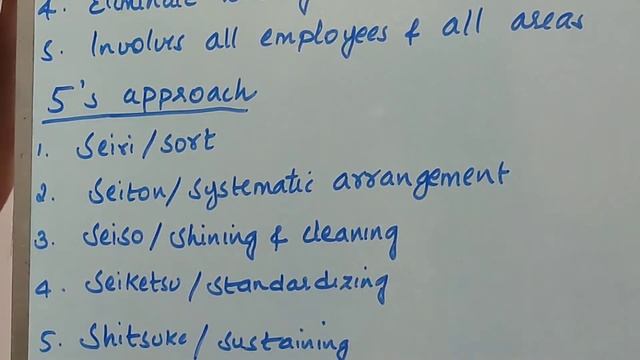 4. Eliminate
5. Involves all employees & all areas
5's approach
1. Seiri / Sort
2. Seiton / Systematic arrangement
3. Seiso / Shining & cleaning
4. Seiketsu / Standardizing
5. Shitsuke / Sustaining